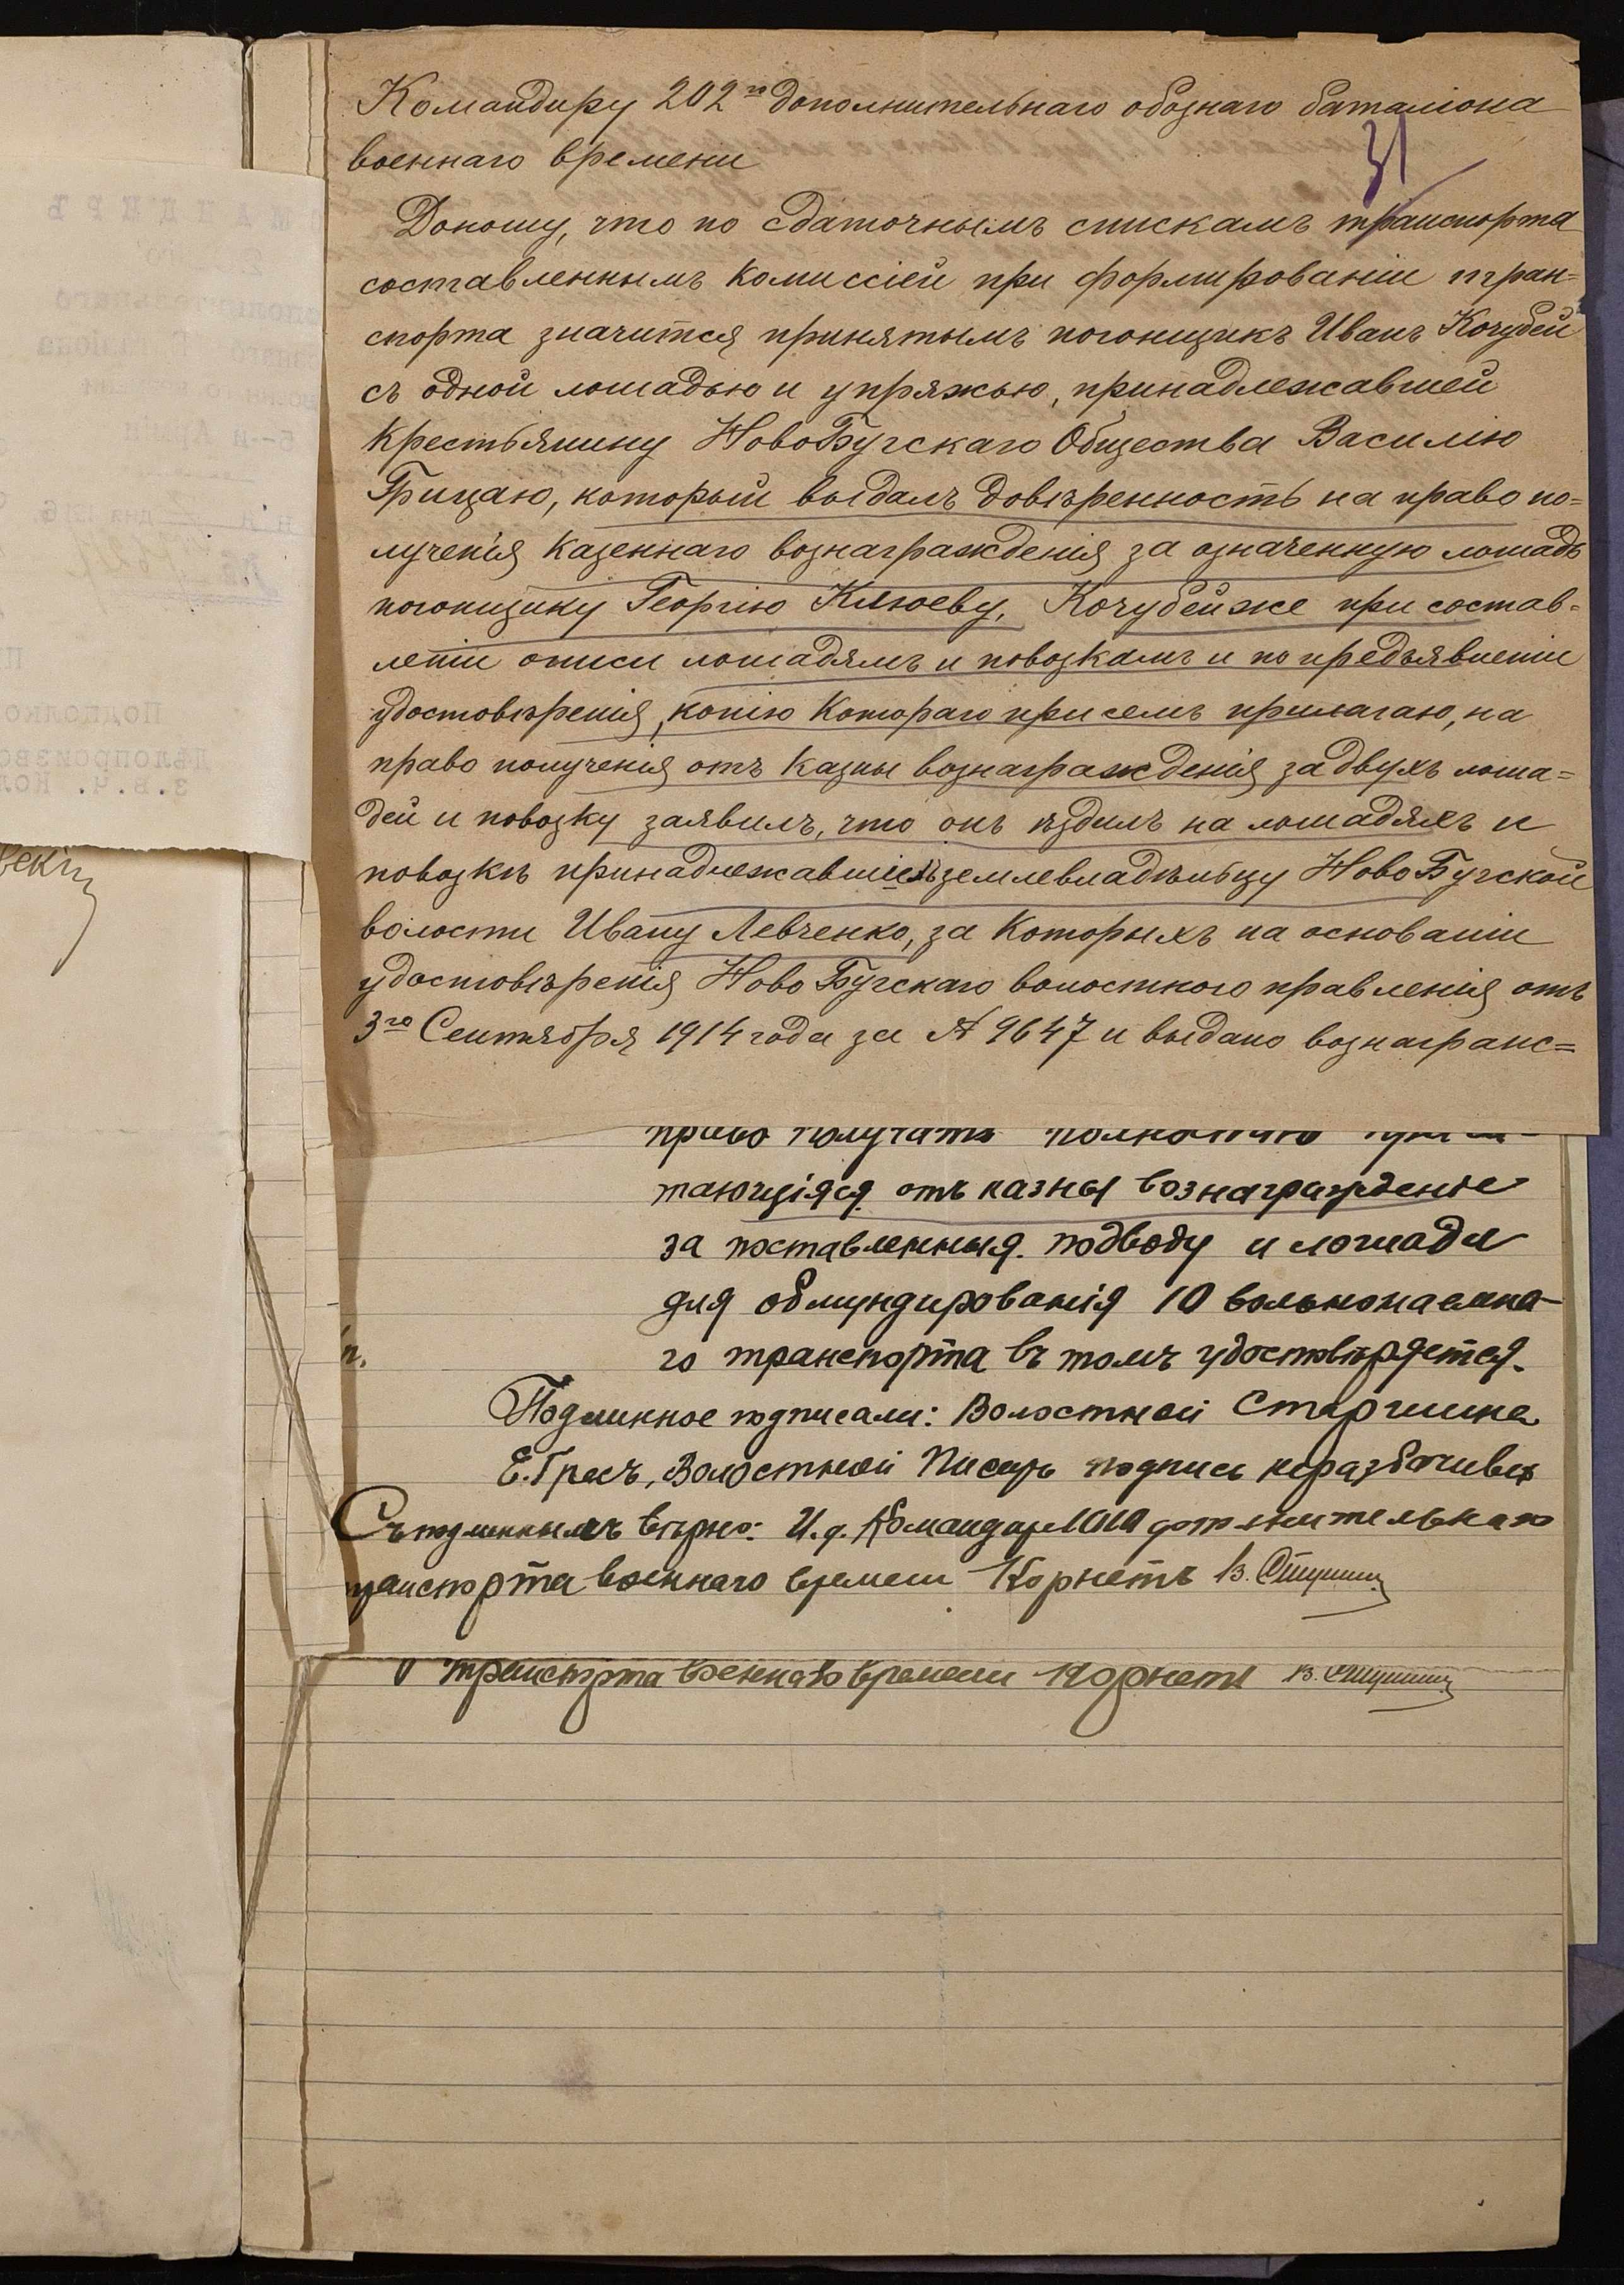 Командиру 202го дополнительнаго обознаго баталіона
31
военнаго времени
Доношу, что по сдаточнымъ спискамъ транспорта
составленнымъ комиссіей при формированіи тран=
спорта значится принятымъ погонщикъ Иванъ Кочубей
съ одной лошадью и упряжью, принадлежавшей
крестьянину НовоБугскаго Общества Василію
Грицаю, который выдалъ довѣренность на право по=
лученія казеннаго вознагражденія за означенную лошадь
погонщику Георгію Клюеву, Кочубей же при состав=
леніи описи лошадямъ и повозкамъ и по предъявленіи
удостовѣренія, копію котораго при семъ прилагаю, на
право полученія отъ казны вознагражденія за двухъ лоша=
дей и повозку заявилъ, что онъ ѣздилъ на лошадяхъ и
повозкѣ принадлежавшихъ землевладѣльцу НовоБугской
волости Ивану Левченко, за которыхъ на основаніи
удостовѣренія НовоБугскаго волостного правленія отъ
3го Сентября 1914 года за № 9647 и выдано вознаграж=
право получать полностію
тающіяся отъ казны вознагражденіе
за поставленныя подводу и лошади
для обмундированія 10 вольнонаемна-
го транспорта въ томъ удостовѣряется.
Подлинное подписали: Волостной Старшина
Е. Грекъ, Волостной Писарь подпись неразборчива
Съ подлиннымъ вѣрно: И.д. Командира 1010 дополнительнаго
транспорта военнаго времени Корнетъ В.
транспорта военнаго времени Корнетъ В.